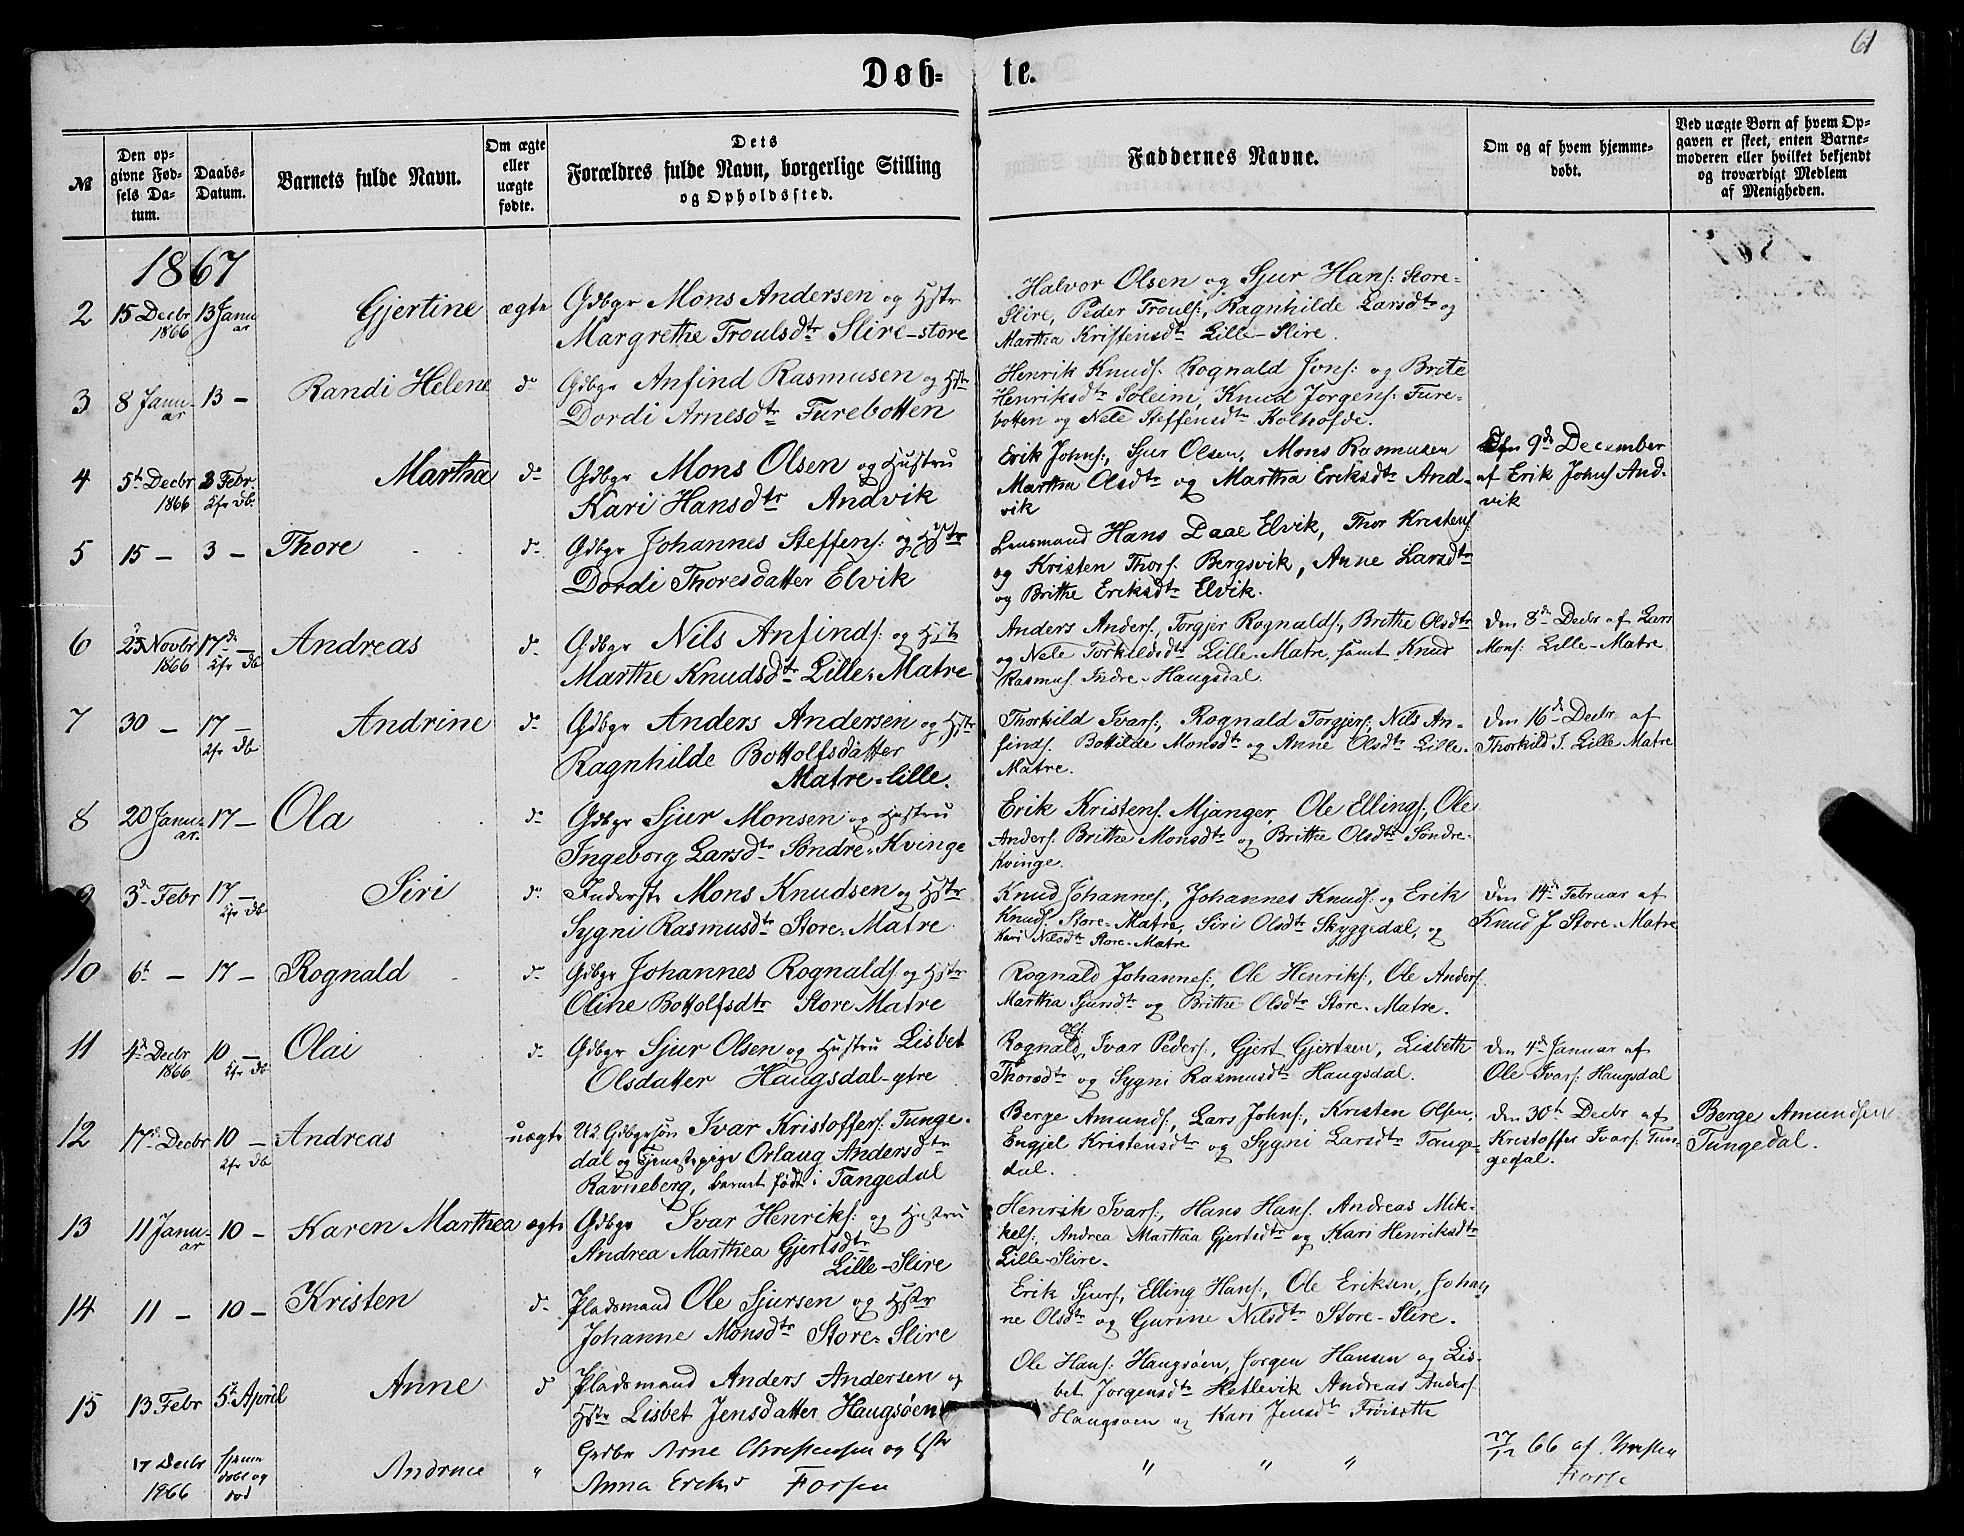 61
Døb= te.
№
Den op-
givne Fød-
sels Da-
tum.
Daabs-
Datum.
Barnets fulde Navn.
Om ægte
eller
uægte
fødte.
Dets
Forældres fulde Navn, borgerlige Stilling
og Opholdssted.
Faddernes Navne.
Om og af hvem hjemme-
døbt.
Ved uægte Børn af hvem Op-
gaven er skeet, enten Barne-
moderen eller hvilket bekjendt
og troværdigt Medlem
af Menigheden.
1867
2 15 Decbr 1866 13 Januar Gjertine ægte Gdbgr Mons Andersen og Hstr
Margrethe Troulsdtr Slire-store
Halvor Olsen og Sjur Hans: Store-
Slire, Peder Trouls:, Ragnhilde Larsdtr og
Martha Kristensdtr Lille-Slire.
3 8 Januar 13 - Randi Helene do Gdbgr Anfind Rasmusen og Hstr
Dordi Arnesdtr Furebotten
Henrik Knuds. Rognald Jons: og Brite
Henriksdtr Soleim, Knud Jorgens: Fure-
botten og Nele Steffensdtr Kolhofde.
4 5t Decbr 1866 2 Febr. Martha do Gdbgr Mons Olsen og Hustru
Kari Hansdtr Andvik
Erik Johns:, Sjur Olsen, Mons Rasmusen
Martha Olsdtr og Martha Eriksdtr And-
vik
Den 9de December
af Erik Johns And-
vik
5 15 - 3 - Thore do Gdbgr Johannes Steffens: og Hstr
Dordi Thoresdatter Elvik
Lensmand Hans Daae Elvik, Thor Kristens:
og Kristen Thors. Bergsvik, Anne Larsdtr
og Brithe Eriksdtr Elvik.
6 25 Novbr 1866 17de - Andreas do Gdbgr Nils Anfinds: og Hstr
Marthe Knudsdtr Lille-Matre
Anders Anders:, Torgjer Rognalds:, Brithe Olsdtr
og Nele Torkildsdtr Lille-Matre, samt Knud
Rasmus. Indre-Haugsdal.
Den 8de Decbr af Lars
Mons: Lille-Matre
7 30 - 17 - Andrine do Gdbgr Anders Andersen og Hstr
Ragnhilde Bottolfsdatter
Matre-lille.
Thorkild Ivars:, Rognald Torgjers:, Nils An-
finds. Botilde Monsdtr og Anne Olsdtr Lille-
Matre.
Den 16de Decbr af
Thorkild I. Lille Matre
8 20 Januar. 17 - Ola do Gdbgr Sjur Monsen og Hustru
Ingeborg Larsdtr Søndre-Kvinge
Erik Kristens: Mjanger, Ole Ellings:, Ole
Anders. Brithe Monsdtr og Brithe Olsdtr Søndre-
Kvinge.
9 3de Febr 17 - Siri do Inderste Mons Knudsen og Hstr
Sygni Rasmusdtr Store-Matre
Knud Johannes:, Johannes Knuds: og Erik
Knuds: Store-Matre, Siri Olsdtr Skyggedal, og
Kari Nilsdtr Store-Matre
Den 14de Februar af
Knud J Store-Matre
10 6t - 17 - Rognald do Gdbgr Johannes Rognalds: og Hstr
Oline Bottolfsdtr Store Matre
Rognald Johannes:, Ole Henriks:, Ole Anders:
Martha Sjursdtr og Brithe Olsdtr Store-Matre.
11 4de Decbr 1866 10 - Olai do Gdbgr Sjur Olsen og Hustru Lisbet
Olsdatter Haugsdal-ytre
Rognald Ols:, Ivar Peders:, Gjert Gjertsen, Lisbeth
Thorsdtr og Sygni Rasmusdtr Haugsdal.
Den 4de Januar af
Ole Ivars: Haugsdal
12 17de Decbr 10 - Andreas uægte U2. Gdbgrsøn Ivar Kristoffers: Tunge-
dal og Tjenestepige Orlaug Andersdtr
Ravneberg, barnet født i Tangedal
Berge Amunds:, Lars Johns:, Kristen Olsen,
Engjel Kristensdtr og Sygni Larsdtr Tange-
dal.
Den 30t Decbr af
Kristoffer Ivars: Tun-
gedal.
Berge Amundsen
Tungedal.
13 11 Januar 10 - Karen Marthea ægte Gdbgr Ivar Henriks: og Hustru
Andrea Marthea Gjertsdtr
Lille-Slire
Henrik Ivars:, Hans Hans: Andreas Mik-
kels:, Andrea Marthea Gjertsdtr og Kari Henriksdtr
Lille-Slire.
14 11 - 10 - Kristen do Pladsmand Ole Sjursen og Hstr
Johanne Monsdtr Store-Slire
Erik Sjurs:, Elling Hans:, Ole Eriksen, Johan-
ne Olsdtr og Gurine Nilsdtr Store-Slire.
15 13 Febr 5t April Anne d Pladsmand Anders Andersen og
Hstr Lisbet Jensdatter Haugsøen
Ole Hans: Haugsøen, Jorgen Hansen og Lis-
bet Jorgensdtr Hetlevik Andreas Anders:
Haugsøen og Kari Jensdtr Frøisetle
17 Decbr 1866 hjemme dobt og dod " Grdbr Arne Christensen og Hstr
Anna Eriksd
" " "
66 af